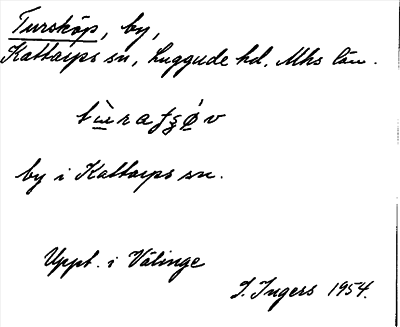 Tursköp, by,
Kattarps sn, Luggude hd. Mhs län.
by i Kattarps sn.
Uppt. i Välinge
I. Ingers 1954.